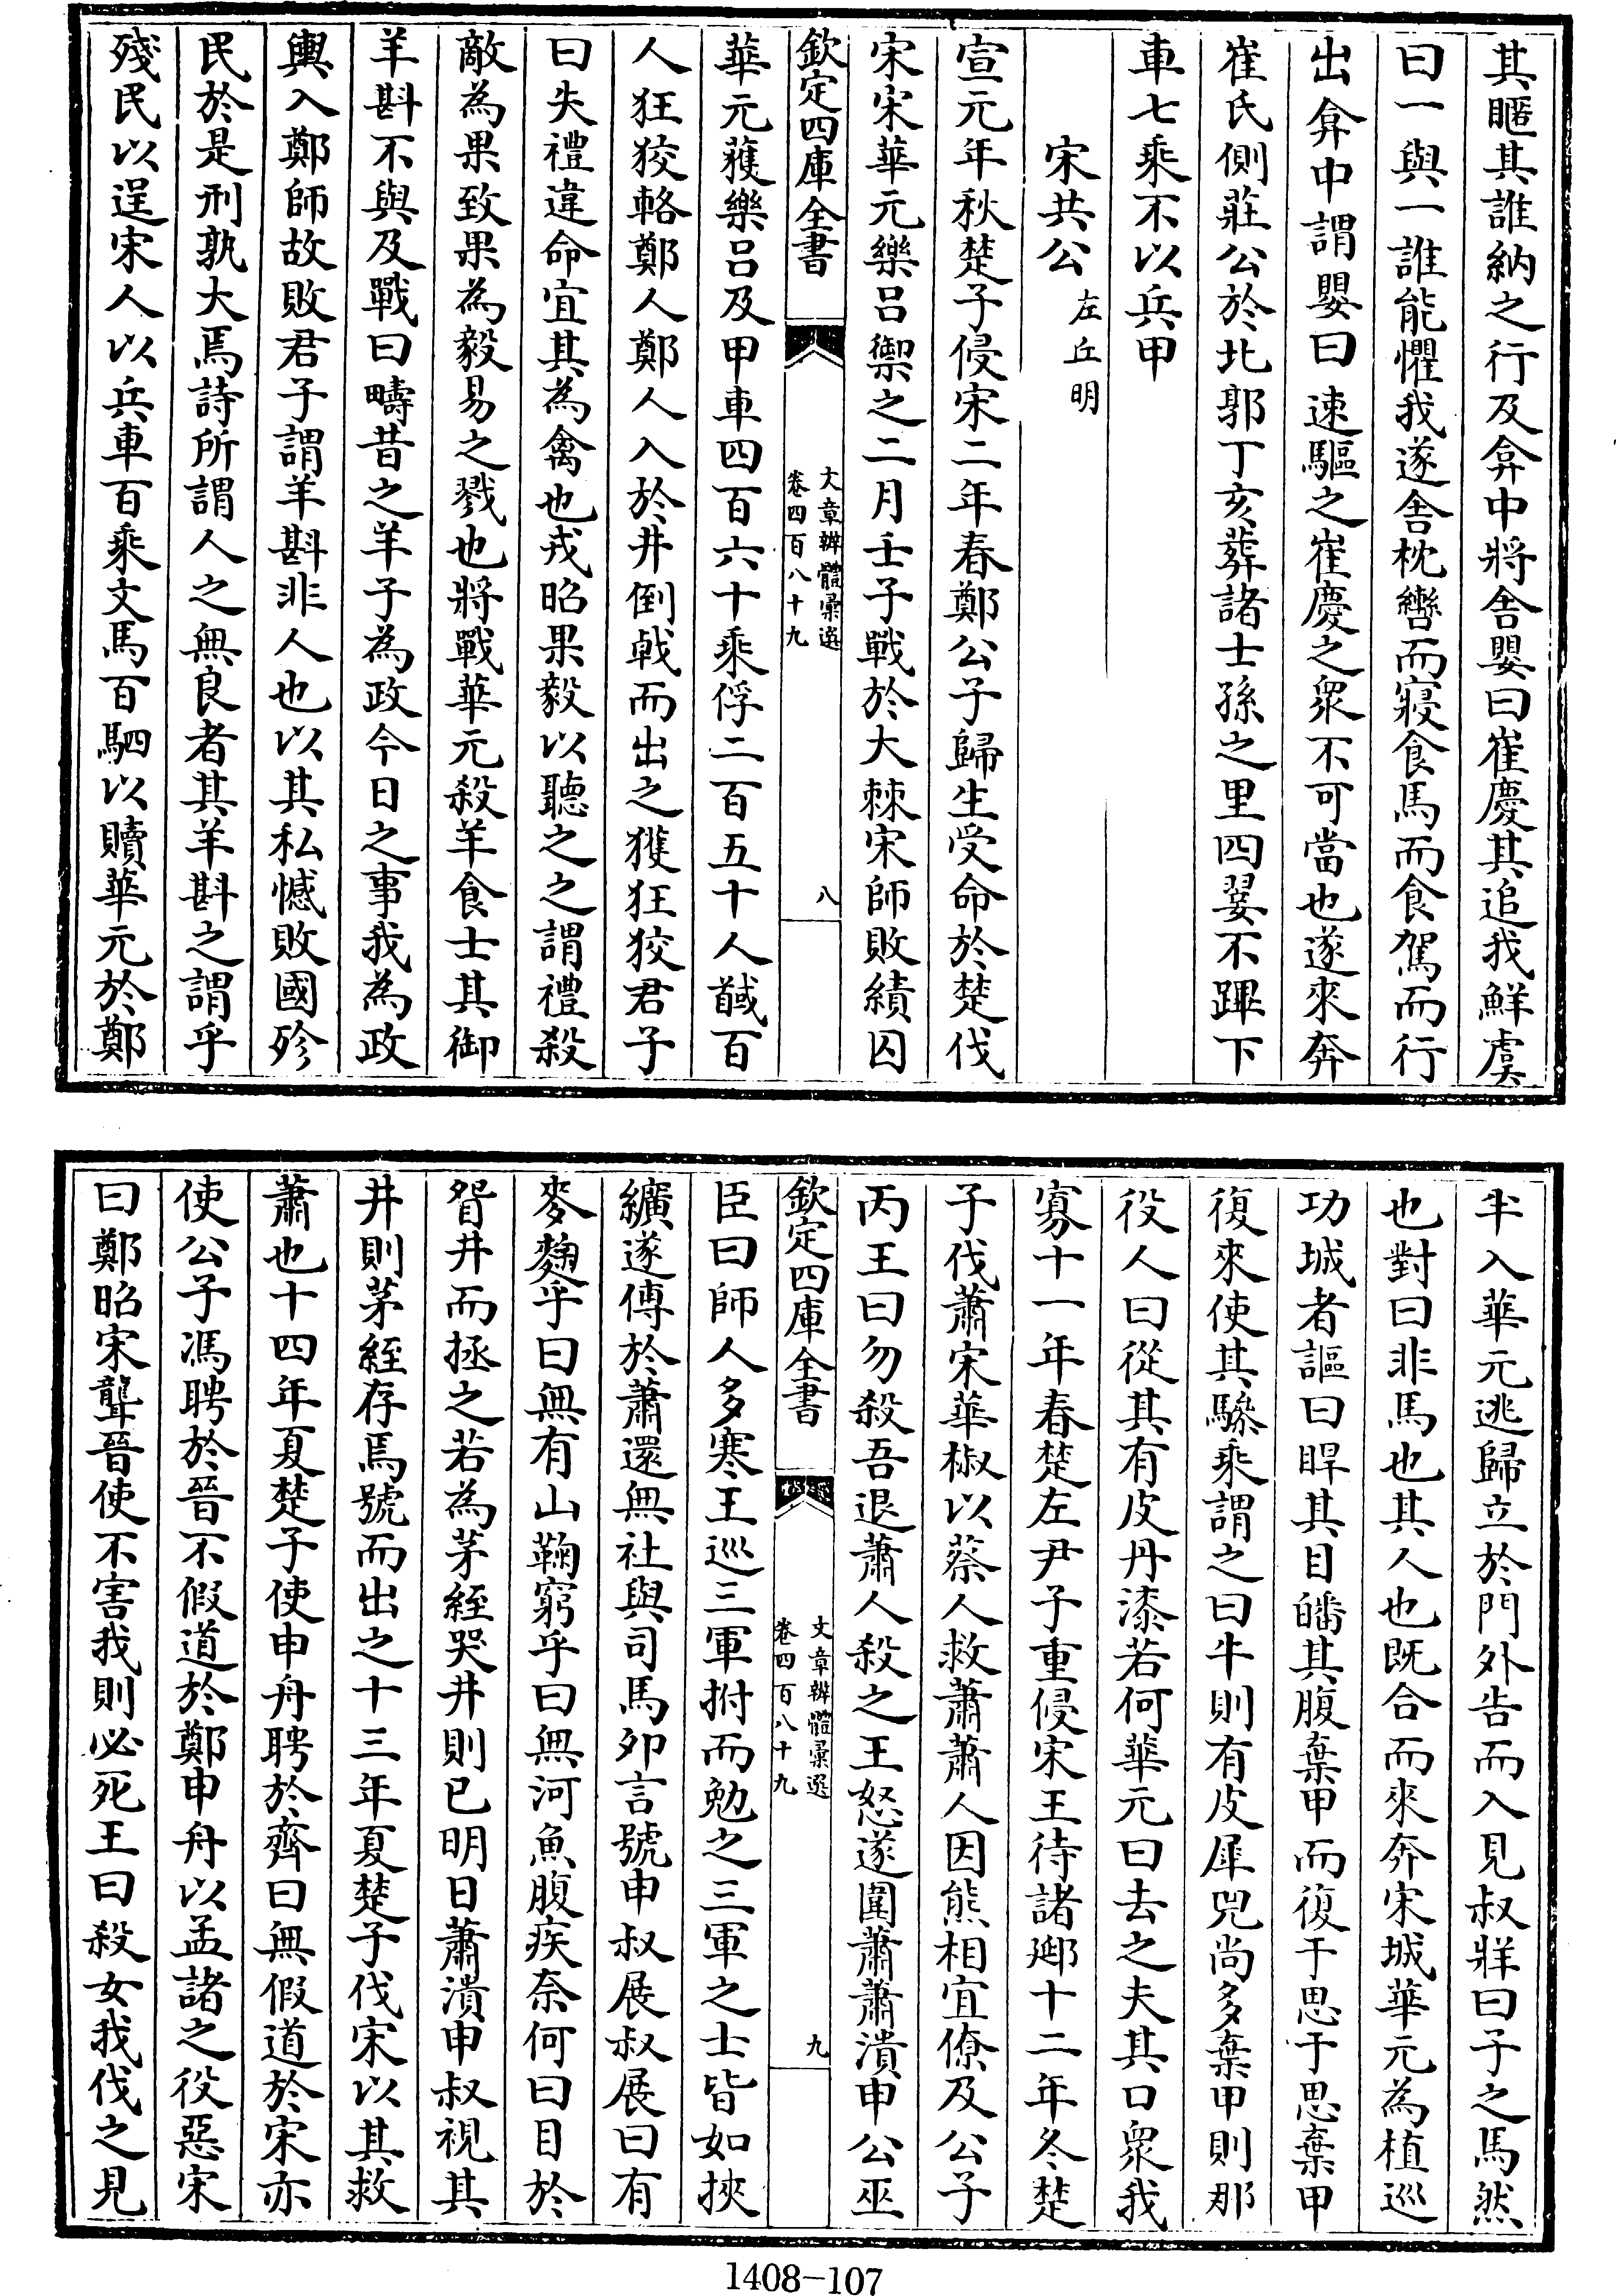 其暱其誰納之行及弇中將舎嬰曰崔慶其追我鮮虞
曰一與一誰能懼我遂舎枕轡而寢食馬而食駕而行
出弇中謂嬰曰速驅之崔慶之衆不可當也遂來奔
崔氏側莊公於北郭丁亥葬諸士孫之里四翣不蹕下
車七乘不以兵甲
宋共公 左丘明
宣元年秋楚子侵宋二年春鄭公子歸生受命於楚伐
宋宋華元樂呂禦之二月壬子戰於大棘宋師敗績囚
欽定四庫全書
文章辨體彚選
卷四百八十九
八
華元獲樂呂及甲車四百六十乘俘二百五十人馘百
人狂狡輅鄭人鄭人入於井倒戟而出之獲狂狡君子
曰失禮違命宜其為禽也戎昭果毅以聽之之謂禮殺
敵為果致果為毅易之戮也將戰華元殺羊食士其御
羊斟不與及戰曰疇昔之羊子為政今日之事我為政
輿入鄭師故敗君子謂羊斟非人也以其私憾敗國殄
民於是刑孰大焉詩所謂人之無良者其羊斟之謂乎
殘民以逞宋人以兵車百乘文馬百駟以贖華元於鄭
半入華元逃歸立於門外告而入見叔牂曰子之馬然
也對曰非馬也其人也既合而來奔宋城華元為植巡
功城者謳曰睅其目皤其腹棄甲而復于思于思棄甲
復來使其驂乘謂之曰牛則有皮犀兕尚多棄甲則那
役人曰從其有皮丹漆若何華元曰去之夫其口衆我
寡十一年春楚左尹子重侵宋王待諸郔十二年冬楚
子伐蕭宋華椒以蔡人救蕭蕭人因熊相宜僚及公子
丙王曰勿殺吾退蕭人殺之王怒遂圍蕭蕭潰申公巫
欽定四庫全書
文章辨體彚選
卷四百八十九
九
臣曰師人多寒王巡三軍拊而勉之三軍之士皆如挾
纊遂傅於蕭還無社與司馬卯言號申叔展叔展曰有
麥麴乎曰無有山鞠窮乎曰無河魚腹疾奈何曰目於
眢井而拯之若為茅絰哭井則已明日蕭潰申叔視其
井則茅絰存焉號而出之十三年夏楚子伐宋以其救
蕭也十四年夏楚子使申舟聘於齊曰無假道於宋亦
使公子馮聘於晉不假道於鄭申舟以孟諸之役惡宋
曰鄭昭宋聾晉使不害我則必死王曰殺女我伐之見
1408-107